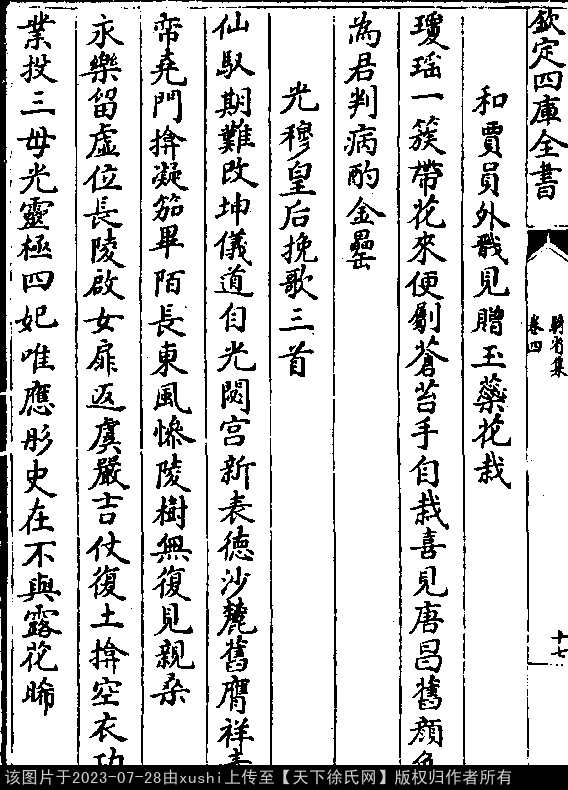 欽定四庫全書
騎省集
卷四
十七
和賈員外戩見贈玉蘂花栽
瓊瑶一簇帶花來便劚蒼苔手自栽喜見唐昌舊顔色
為君判病酌金罍
光穆皇后挽歌三首
仙馭期難改坤儀道自光閟宮新表德沙麓舊膺祥
帟堯門揜凝笳畢陌長東風慘陵樹無復見親桑
永樂留虛位長陵啟女扉返虞嚴吉仗復土揜空衣功
業投三母光靈極四妃唯應彤史在不與露花晞
该图片于2023-07-28由xushi上传至【天下徐氏网】版权归作者所有